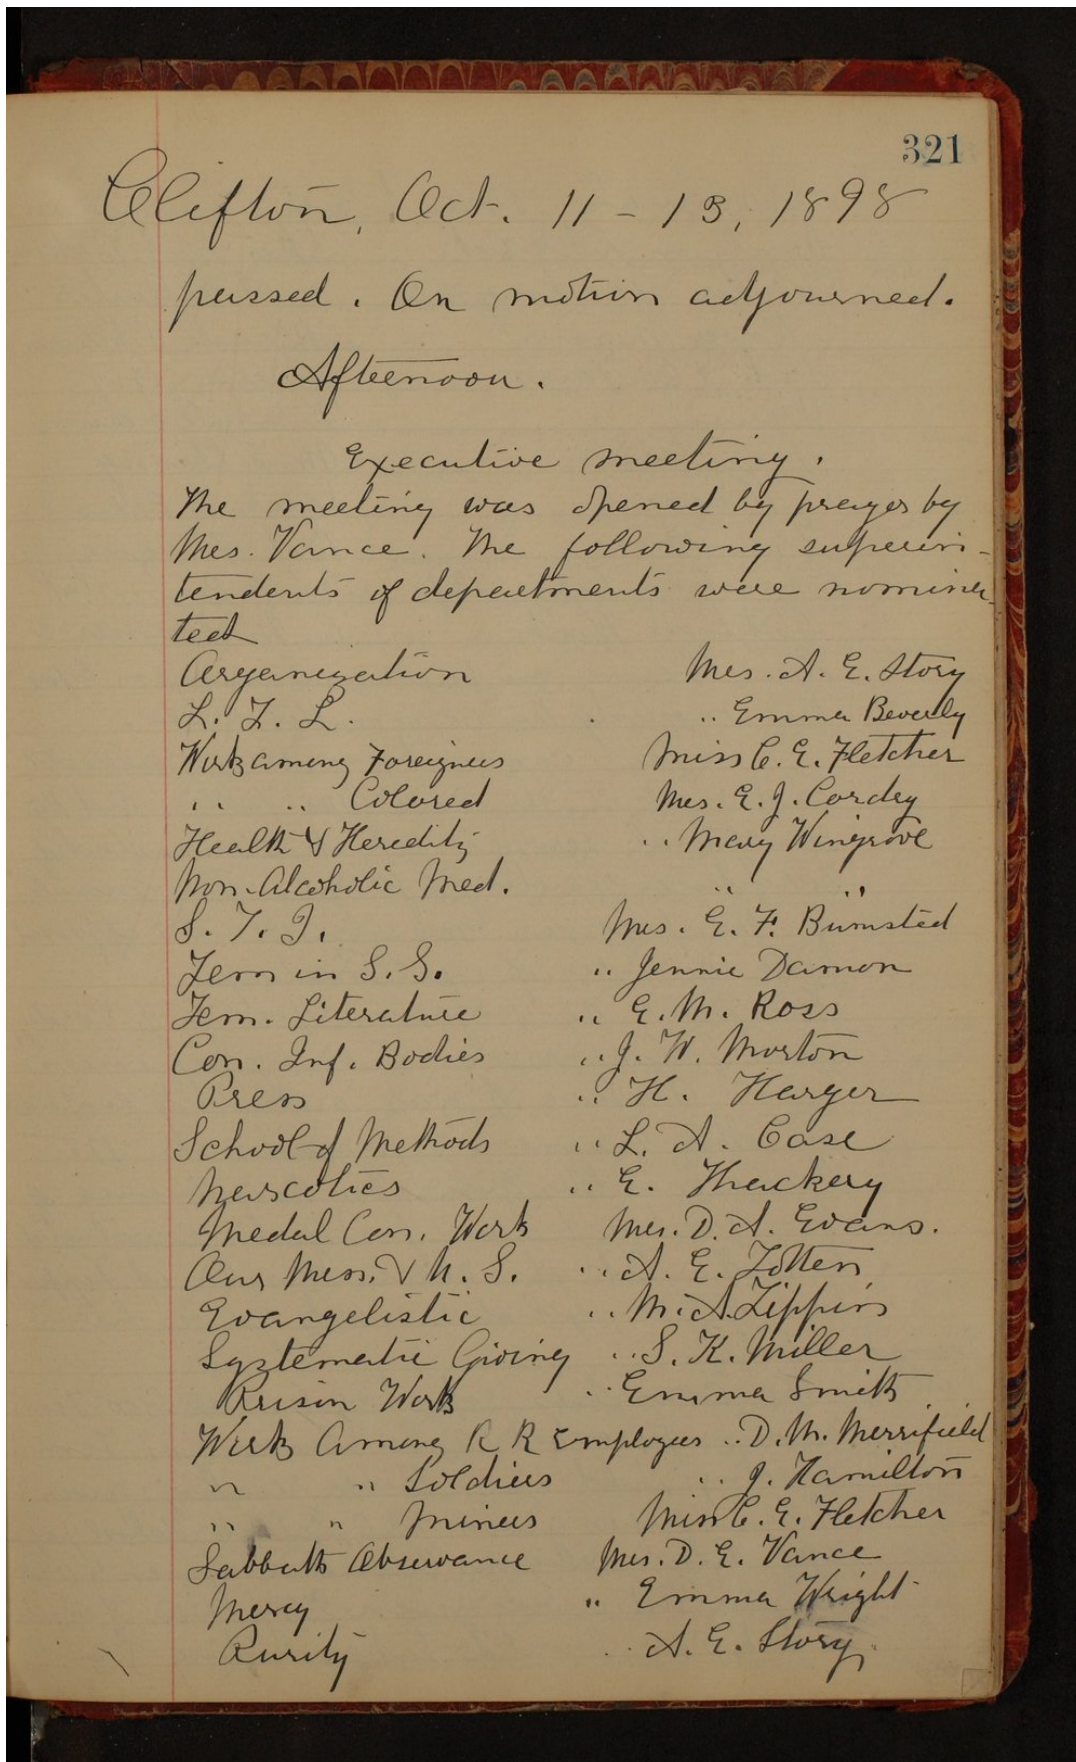 321
Clifton, Oct. 11 - 13, 1898
passed. On motion adjourned.
Afternoon.
Executive meeting.
The meeting was opened by prayer by
Mrs. Vance. The following superin-
tendents of departments were nomina-
ted
Organization Mrs. A. E. Story
L. T. L. " Emma Beverly
Work among Foreigners Miss C. E. Fletcher
" " Colored Mrs. E. J. Cordey
Health & Heredity " Mary Wingrove
Non-Alcoholic Med. " "
S. T. I. Mrs. E. F. Bumsted
Tem in S. S. " Jennie Damon
Tem. Literature " E. M. Ross
Con. Inf. Bodies " J. W. Morton
Press " H. Harger
School of Methods " L. A. Case
Narcotics " E. Thackery
Medal Con. Work Mrs. D. A. Evans.
Our Mess. & U. S. " A. E. Totten
Evangelistic " M. A. Zippin
Systematic Giving " S. K. Miller
Prison Work " Emma Smith
Work Among R R Employees " D. M. Merrifield
" " Soldiers " J. Hamilton
" " Miners Miss C. E. Fletcher
Sabbath Observance Mrs. D. E. Vance
Mercy " Emma Wright
Purity " A. E. Story